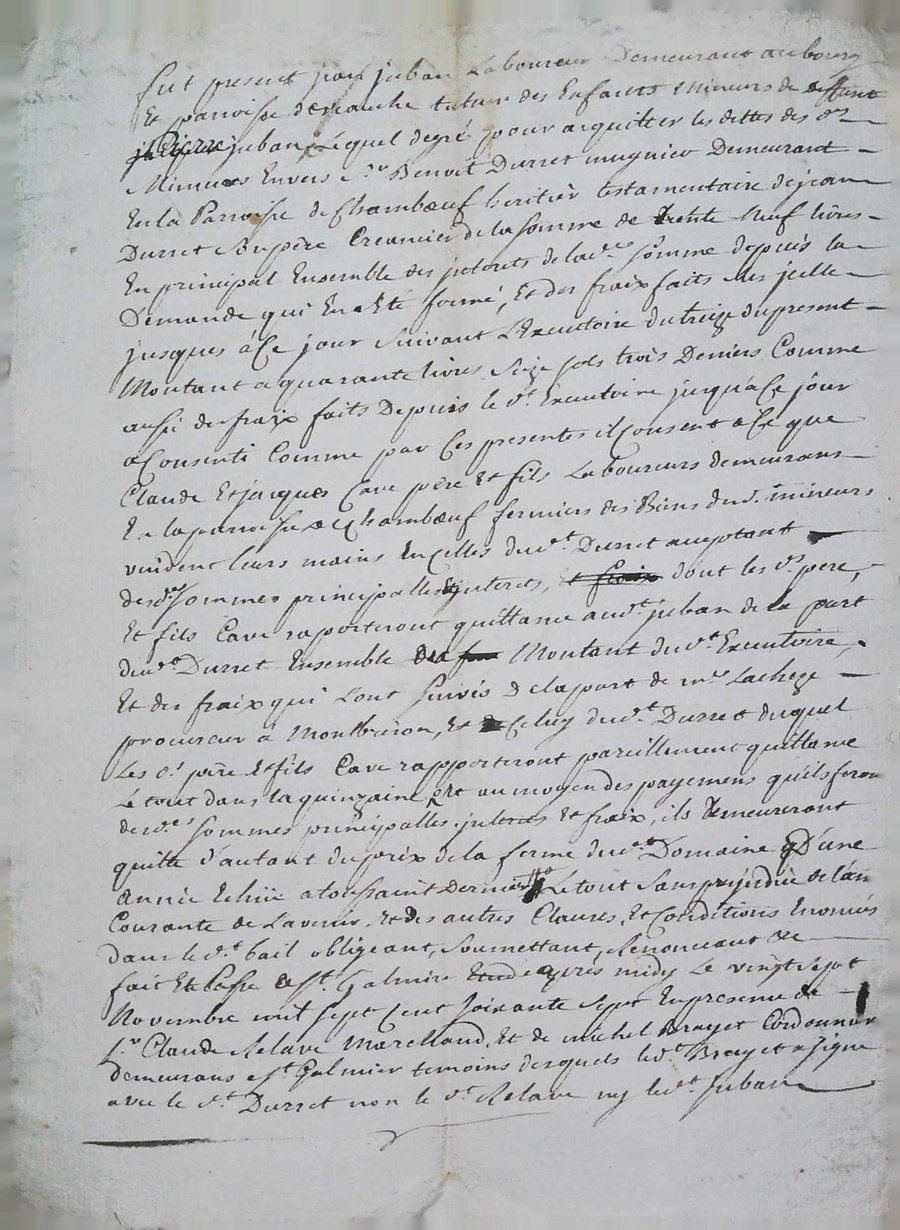 fut present paul juban Laboureur Demeurant au bourg
Et parroisse demarche tuteur des Enfants Mineurs de deffunt
pierre juban, Lequel degré pour aquitter les dettes des dts
Mineurs Envers Sr Benoit Durret mugnier Demeurant
En la Parroisse de Chambœuf heritier testamentaire de jean
Durret Son père Creancier de la somme de trente Neuf livres
En principal Ensemble des jnterets de la de somme depuis la
Demande qui En a Eté formé, Et des fraix faits
jusques à Ce jour Suivant L'Executoire du treize du present
Montant a quarante livres Seize sols trois Deniers Comme
aussi des fraix faits Depuis le dt Executoire jusqu'à Ce jour
a Consenti Comme par Ces presentes il Consent a Ce que
Claude Et jacques Cave père Et fils Laboureurs demeurans
En la parroisse de Chambœuf fermiers des Biens des d. mineurs
vuident leurs mains En celles du dt Durret acceptant
des des sommes principalles Et jnterets, et fraix dont les ds pere,
Et fils Cave raporteront quittame au dt juban de la part
du dt Durret Ensemble des Montant du dt Executoire,
Et des fraix qui L'ont suivis de la part de me Lacheze
procureur à Montbrison, Et de Celuy du dt Durret duquel
Les ds père Et fils Cave rapporteront pareillement quittame
Le tout dans la quinzaine, Et au moyen des payemens qu'ils feron
de des sommes principalles jnterets Et fraix, ils demeureront
quitte d'autant du prix de la ferme du dt Domaine D'une
année Echüe a toussaint dernier Le tout Sans prejudice de l'an
Courante de L'avenir, Et des autres Clauses, Et Conditions Enoncés
dans le dt bail obligeant, soumettant, Renonceant &c
fait Et Passé a St Galmier Etude après midy Le vingt sept
Novembre mil sept Cent soixante sept En presence de
Sr Claude Relave Marchand, Et de michel Brayet Cordonnier
demeurans a St Galmier temoins desquels le dt Brayet a signé
avec le dt Durret non le dt Relave ny le dt Juban